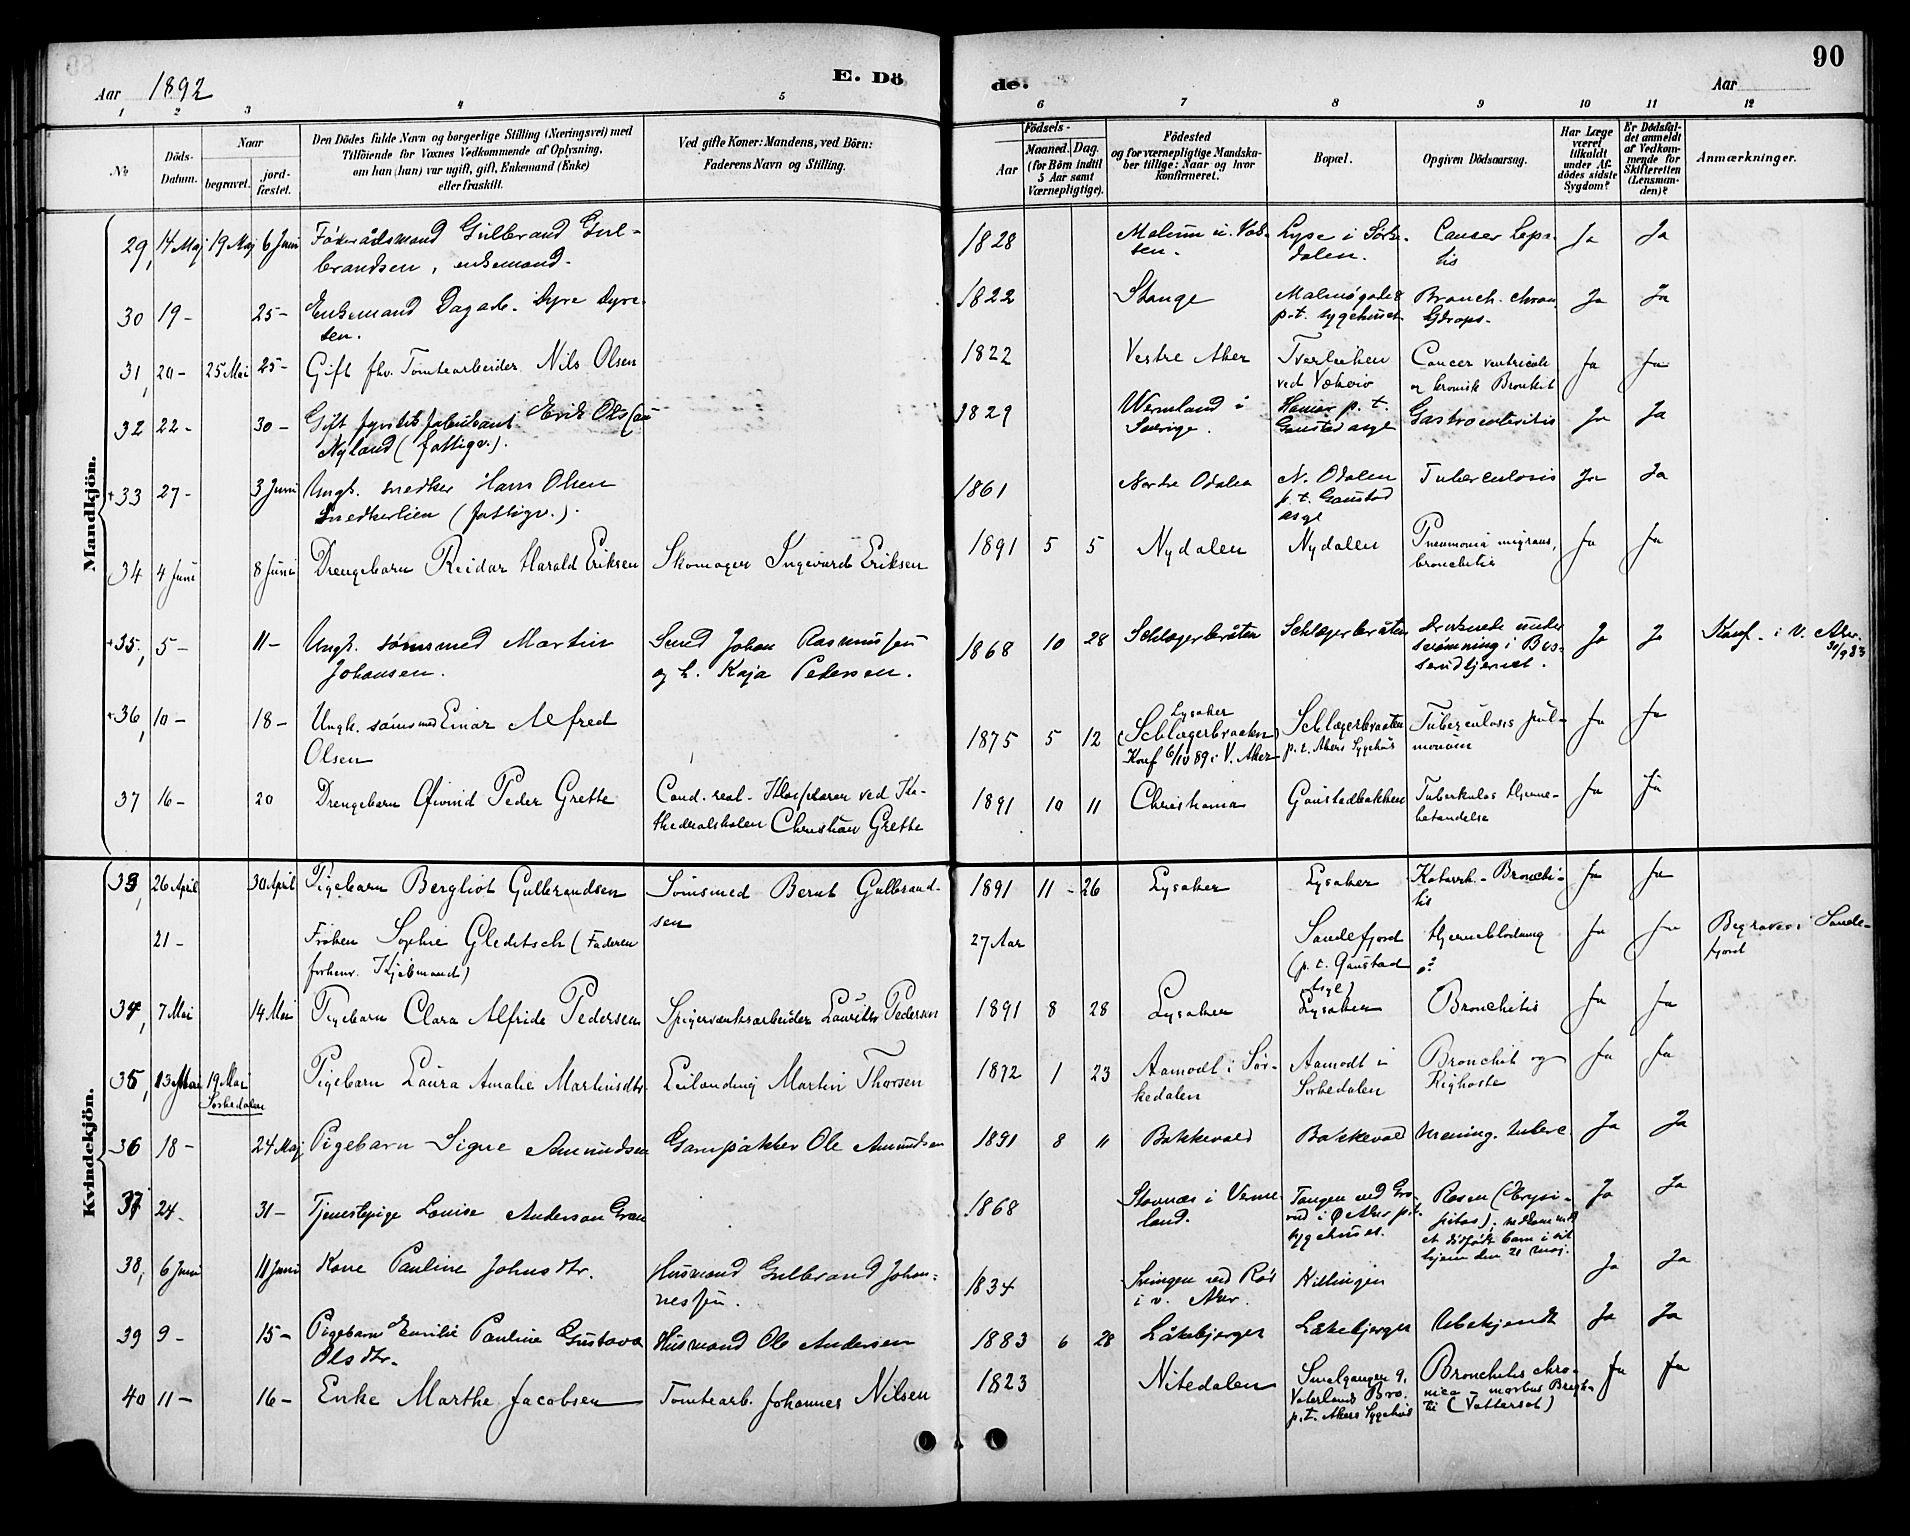 90
Aar 1892 E. Dö de. Aar
1 2 3 4 5 6 7 8 9 10 11 12
No. Döds-Datum. Naar begravet. jordfæstet. Den Dödes fulde Navn og borgerlige Stilling (Næringsvei) med Tilföiende for Voxnes Vedkommende af Oplysning, om han (hun) var ugift, gift, Enkemand (Enke) eller fraskilt. Ved gifte Koner: Mandens, ved Börn: Faderens Navn og Stilling. Födsels- Aar Maaned. Dag. (for Börn indtil 5 Aar samt Værnepligtige). Födested og for værnepligtige Mandskaber tillige: Naar og hvor konfirmeret. Bopæl. Opgiven Dödsaarsag. Har Læge været tilkaldt under Afdödes sidste Sygdom? Er Dödsfaldet anmeldt af Vedkommende for Skifteretten (Lensmanden)? Anmærkninger.
Mandkjön.
29, 14 Maj 19 Maj 6 Juni Föderådsmand Gulbrand Gulbrandsen, enkemand. 1828 Lyse i Sörkedalen. Cancer Ja Ja
30 19- 25- Enkemand Dagarb. Dyre Dyresen. 1822 Stange Malmögade 8 p.t. sygehuset Bronch. chron. Ja Ja
31, 20- 25 Mai 25- Gift fhv. Tomtearbeider Nils Olsen 1822 Vestre Aker ved Vækerö Cancer ventriculi og kronisk Bronkit Ja Ja
32 22- 30- Gift fyrstikfabrikant Erik Olsson Nyland (fattigv.). 1829 Wermland i Sverige. p.t. Gaustad asyl Gastroenteritis Ja Ja
+33 27- 3 Juni Ungk. snedker Hans Olsen Snedkerlien (fattigv.). 1861 Nordre Odalen N. Odalen p.t. Gaustad asyl Tuberculosis Ja Ja
34 4 Juni 8 Juni Drengebarn Reidar Harald Eriksen Skomager Ingevard Eriksen 1891 5 5 Nydalen Nydalen Pneumonia migrans, bronchitis Ja Ja
+35, 5- 11- Ungk. sömsmed Martin Johansen. Smed Johan Rasmussen og h. Kaja Petersen. 1868 10 28 Schlagerbråten Schlægerbråten Druknede under svömning i Ja Ja Konf. i V. Aker 30/9 83
+36, 10- 18- Ungk. sömsmed Einar Alfred Olsen 1875 5 12 Lysaker (Schlægerbraaten) Konf 6/10 89 i V. Aker Schlægerbraaten p.t. Akers Sygehus Tuberculosis pulmonum Ja Ja
37 16- 20 Drengebarn Öivind Peder Grette Cand. real. Klasselærer ved Kathedralskolen Christian Grette 1891 10 11 Christiania Gaustadbakken Tuberkuløs Hjernebetændelse Ja Ja
Kvindekjön.
33, 26 April 30 April Pigebarn Bergliot Gulbrandsen Sömsmed Bernt Gulbrandsen 1891 11- 26 Lysaker Lysaker Katarrh.- Bronchitis Ja Ja
21- Fröken Sophie Gleditsch (Faderen forhenv. Kjöbmand) 27 Aar Sandefjord (p.t. Gaustad Asyl) Hjerneblödning ? Ja Ja Begraves i Sandefjord
34, 7 Mai 14 Mai Pigebarn Clara Alfride Pedersen Spigerværksarbeider Lauritz Pedersen 1891 8 28 Lysaker Lysaker Bronchitis Ja Ja
35, 13 Mai 19 Mai Sørkedalen Pigebarn Laura Amalie Martinsdtr. Leilending Martin Thorsen 1892 1 23 Aamodt i Sørkedalen Aamodt i Sørkedalen Bronchit og Kighoste Ja Ja
36 18- 24 Maj Pigebarn Signe Amundsen Garnpakker Ole Amundsen 1891 8 11 Bakkevold Bakkevold mening. tuberc. Ja Ja
37 24- 31- Tjenestepige Louise Anderson Gran 1868 i Vermeland. Tangen ved i Ø Aker p.t. sygehuset. Rosen (Erysipelas). nedkom med et dödfödt barn i sit hjem den 21 maj. Ja Ja
38, 6 Juni 11 Juni Kone Pauline Johnsdtr. Husmand Gulbrand Johannessen. 1834 Svingen ved Röa i v. Aker. Ja Ja
39 9- 15- Pigebarn Emilie Pauline Gustava Olsdtr. Husmand Ole Andersen 1883 6 28 Låkebjerget Låkebjerget Ubekjendt Ja Ja
40 11- 16- Enke Marthe Jacobsen Tomtearb. Johannes Nilsen 1823 Nitedalen Smalgangen 9, Vaterlands Bro. p.t. Akers Sygehus Bronchitis chronica - morbus Brightii (Vattersot) Ja Ja